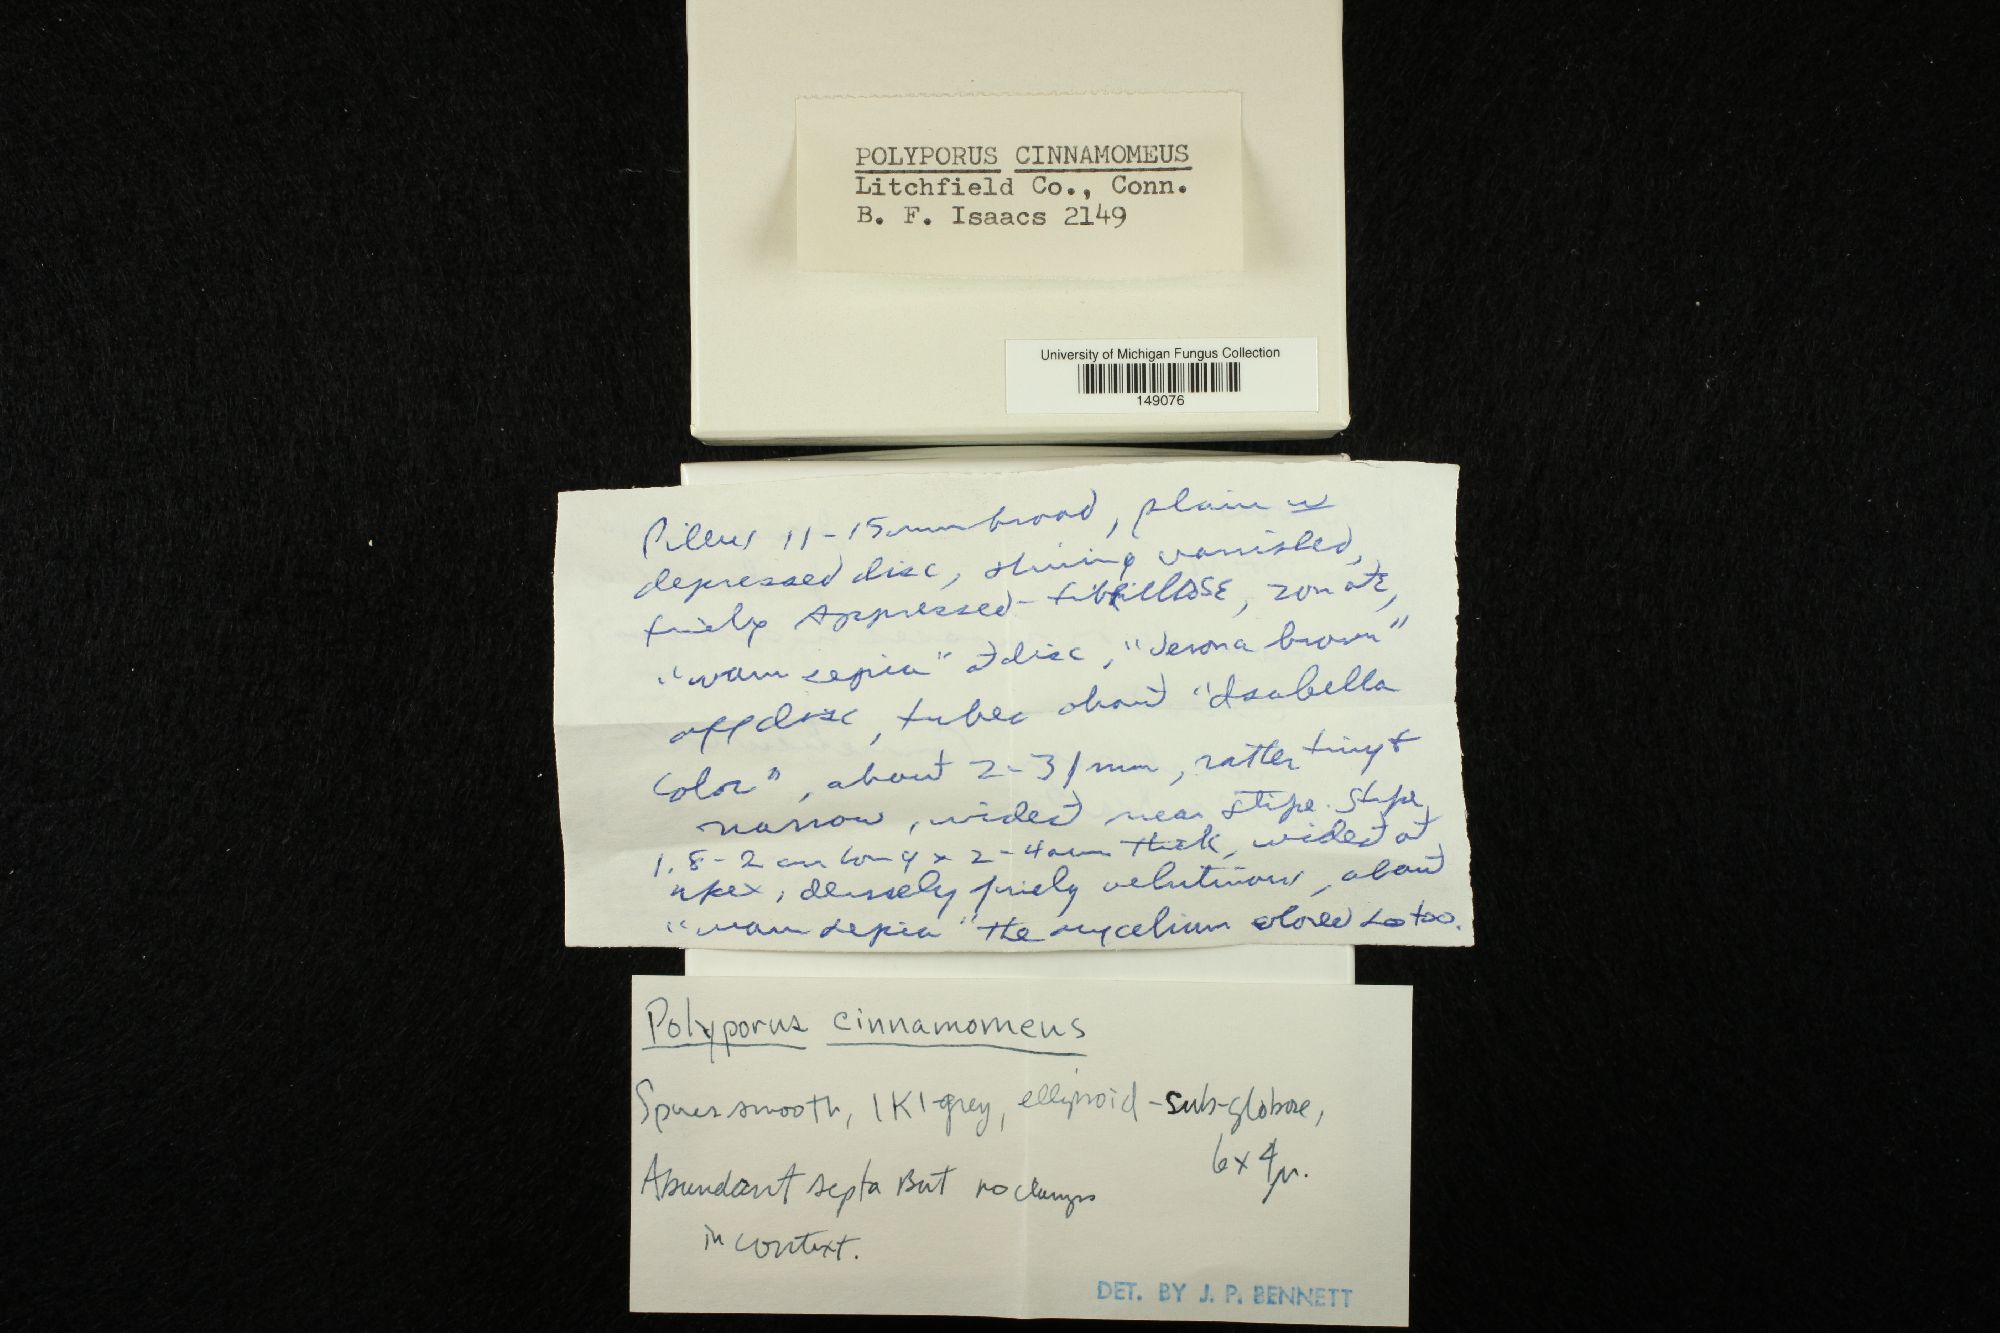 POLYPORUS CINNAMOMEUS
Litchfield Co., Conn.
B. F. Isaacs 2149
University of Michigan Fungus Collection
149076
Pileus 11-15 mm broad, plain w
depressed disc, shining varnished,
finely appressed-fibrillose, zonate,
"warm sepia" at disc, "Verona brown"
off disc, tubes about "Isabella
color", about 2-3/mm, rather tiny &
narrow, widest near stipe. Stipe
1.8-2 cm long x 2-4mm thick, widest at
apex, densely finely velutinous, about
"warm sepia" the mycelium colored so too.
Polyporus cinnamomeus
Spores smooth, IKI-grey, ellipsoid-sub-globose,
6x4µ.
Abundant septa But no clamps
in context.
DET. BY J. P. BENNETT